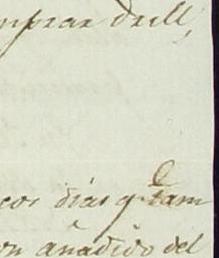 mprar de ill
cos dias q̃ tam
on añadido del